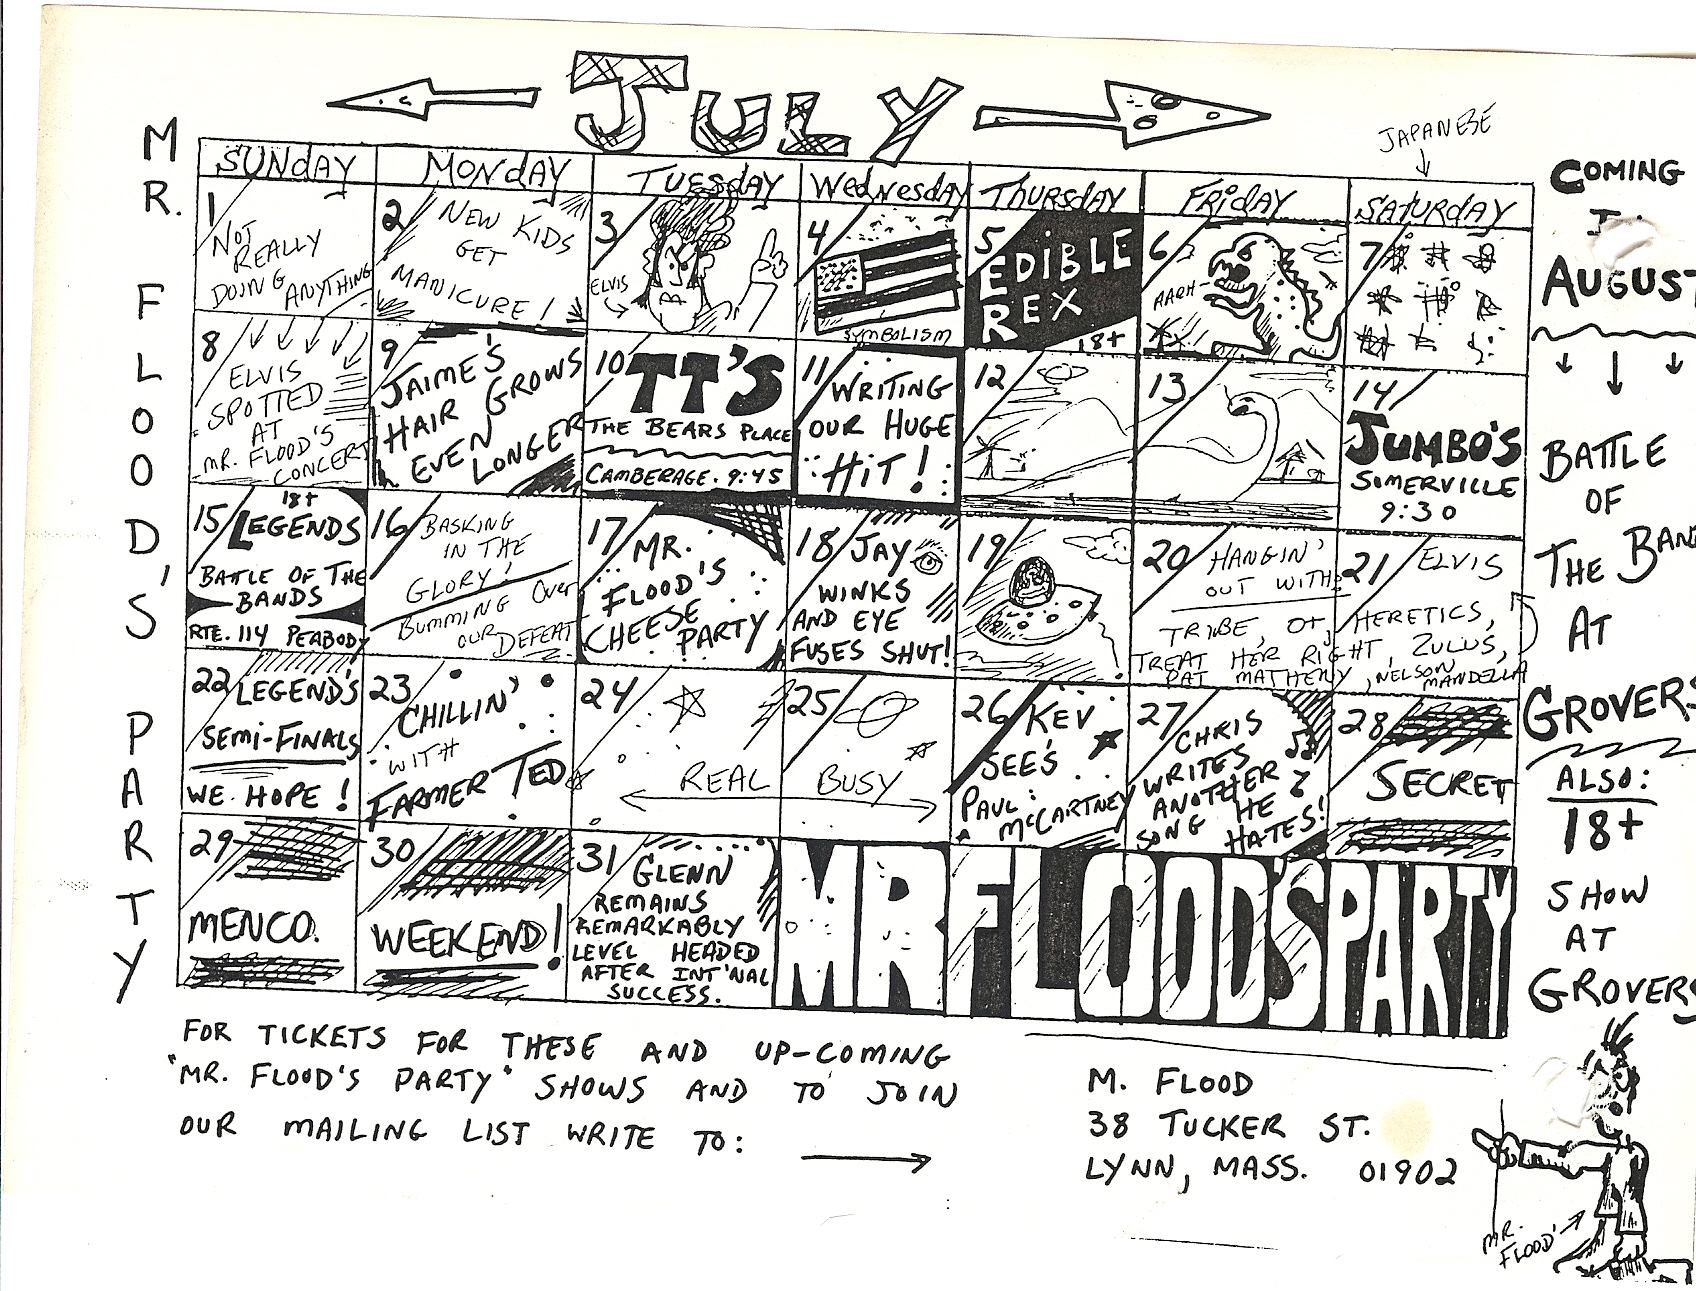 JULY
JAPANESE
MR. FLOOD'S PARTY
SUNDAY MONDAY TUESDAY WEDNESDAY THURSDAY FRIDAY SATURDAY
1
NOT
REALLY
DOING ANYTHING
2
NEW KIDS
GET
MANICURE!
3
ELVIS
4
SYMBOLISM
5
EDIBLE
REX
18+
6
AARH
7
8
ELVIS
SPOTTED
AT
MR. FLOOD'S
CONCERT
9
JAIME'S
HAIR GROWS
EVEN
LONGER
10
TT'S
THE BEARS PLACE
CAMBERAGE. 9:45
11
WRITING
OUR HUGE
HIT!
12
13
14
JUMBO'S
SOMERVILLE
9:30
15
18+
LEGENDS
BATTLE OF THE
BANDS
RTE. 114 PEABODY
16
BASKING
IN THE
GLORY!
BUMMING OVER
OUR DEFEAT
17
MR.
FLOOD'S
CHEESE
PARTY
18
JAY
WINKS
AND EYE
FUSES SHUT!
19
20
HANGIN'
OUT WITH:
21
ELVIS
TRIBE, O+, HERETICS,
TREAT HER RIGHT, ZULUS,
PAT MATHENY, NELSON
MANDELLA
22
LEGEND'S
SEMI-FINALS
WE HOPE!
23
CHILLIN'
WITH
FARMER TED
24
25
REAL BUSY
26
KEV
SEE'S
PAUL
McCARTNEY
27
CHRIS
WRITES
ANOTHER
SONG HE
HATES!
28
SECRET
29
MENCO.
30
WEEKEND!
31
GLENN
REMAINS
REMARKABLY
LEVEL HEADED
AFTER INT'NAL
SUCCESS.
MR FLOOD'S PARTY
COMING
AUGUST
BATTLE
OF
THE BAND
AT
GROVERS
ALSO:
18+
SHOW
AT
GROVERS
FOR TICKETS FOR THESE AND UP-COMING
"MR. FLOOD'S PARTY" SHOWS AND TO JOIN
OUR MAILING LIST WRITE TO:
M. FLOOD
38 TUCKER ST.
LYNN, MASS. 01902
MR.
FLOOD